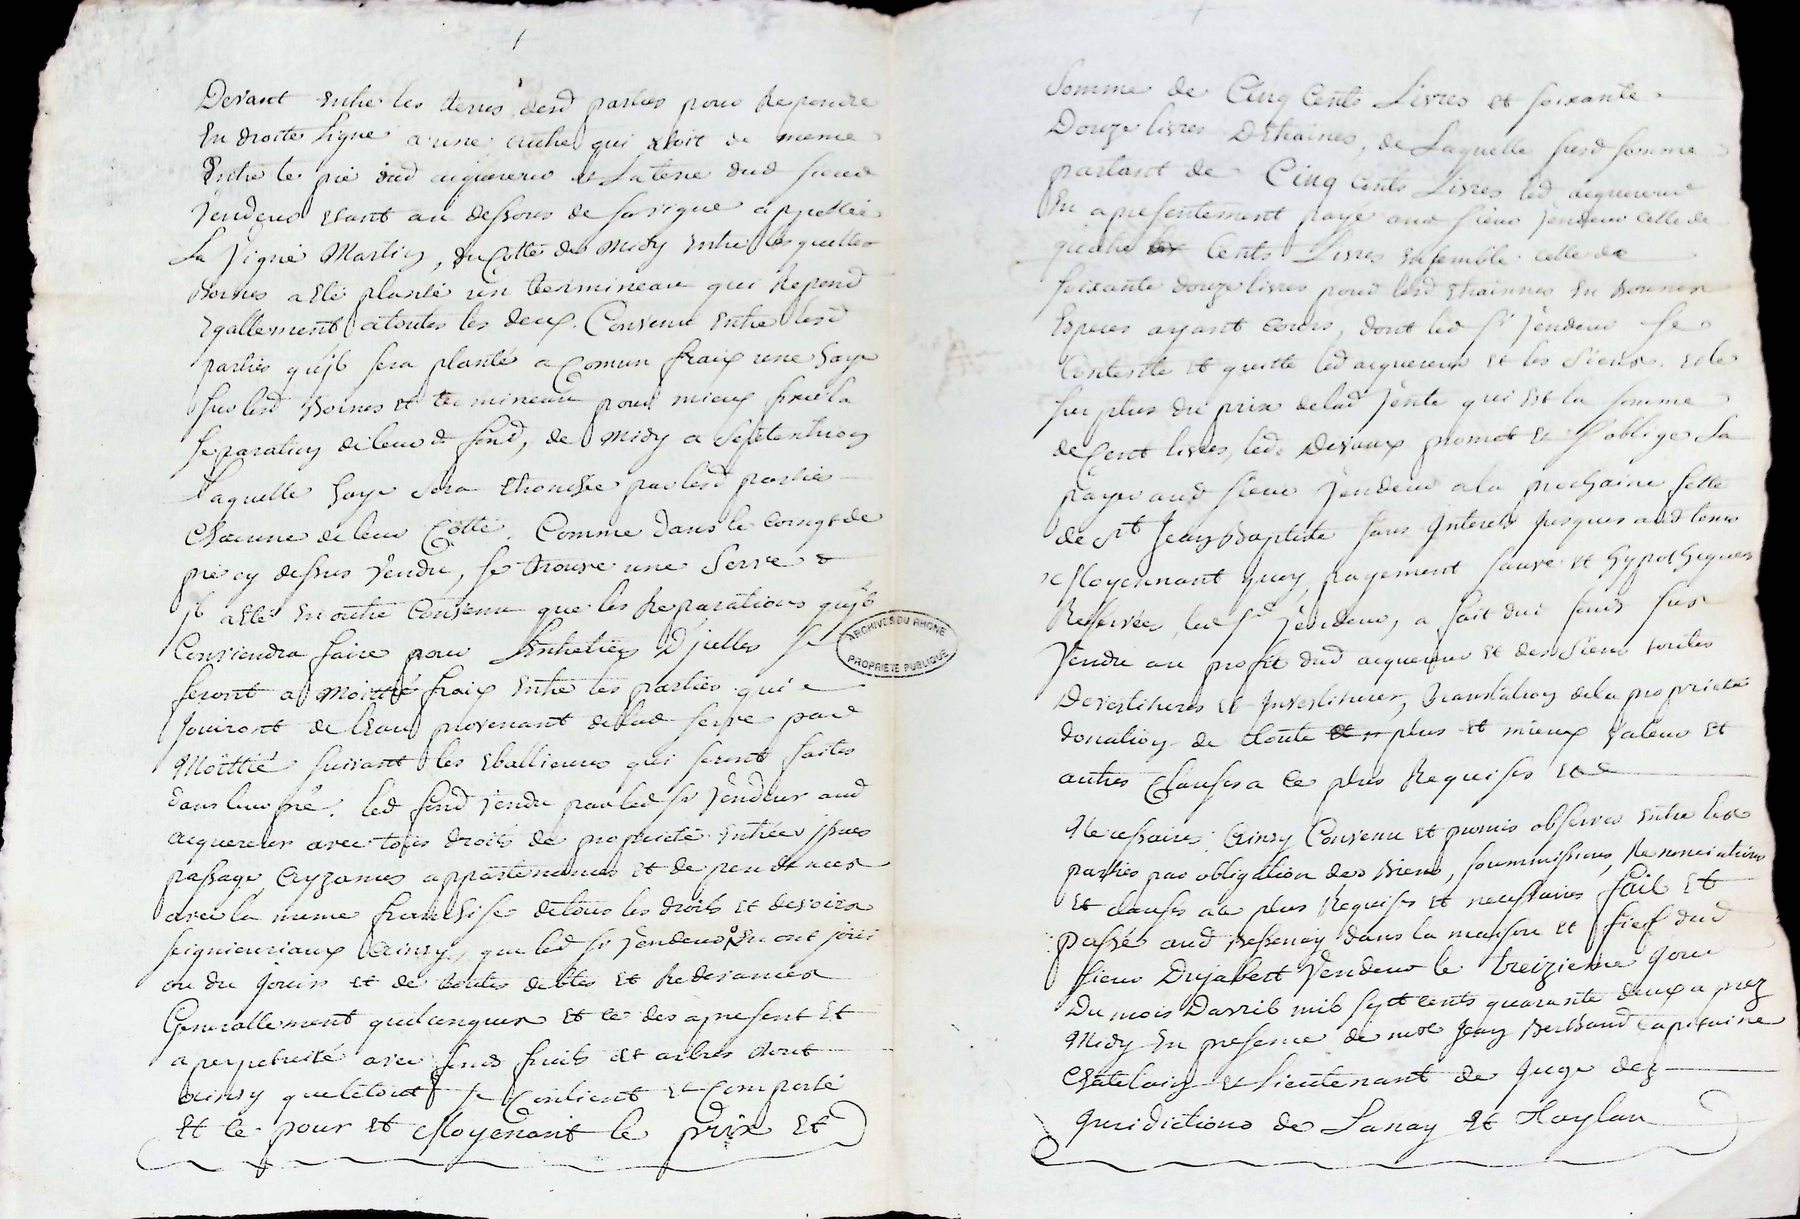 Devant Entre les terres desd parties pour Repondre
En droite Ligne a une autre qui Est de meme
Entre le pré dud acquereur et La terre dud sieur
Vendeur Etant au dessous de sa vigne appellée
La Vigne Martin, du Cotté de Midy Entre lesquelles
Bornes a Eté planté un termineau qui Repond
Egallement a toutes les deux. Convenu Entre lesd
parties qu'jl sera planté a Comun fraix une haye
sur lesd Bornes et termineau pour mieux fixer la
separation de leurd fond, de Midy a septentrion
Laquelle haye sera Etronchée par lesd parties
Chacune de leur Cotté. Comme dans le coing de
pré cy dessus Vendu, se trouve une Serve
jl a Eté En outre Convenu que les Reparations qu'jl
Conviendra faire pour Lentretien Djcelles se
feront a Moittié fraix Entre les parties qui
Jouiront de leau provenant de lad serve par
Moittié suivant les Eballieures qui seront faites
dans leur pré. led fond vendu par led sr Vendeur aud
acquereur avec tous droits de proprieté Entrées jssues
passage Ayzances appartenances et dependances
avec la meme franchise de tous les droits et devoirs
seigneuriaux Ainsy que led sr Vendeur En ont joui
ou du jouir et de toutes debtes et Redevances
Generallement quelconques et ce des apresent et
a perpetuité avec fonds fruits et arbres dont
ainsy que le tout se Contient et Comporte
Et ce pour et Moyenant le prix et
somme de Cinq Cents Livres et soixante
Douze livres Detraines, de Laquelle susd somme
partant de Cinq cents Livres led acquereur
En a presentement payé aud sieur Vendeur celle de
quatre Cents Livres Ensemble celle de
soixante douze livres pour lesd Etrainnes En Bonnes
Especes ayant cours, dont led sr Vendeur se
Contente et quitte led acquereur et les Siens. Et le
surplus du prix de lad Vente qui Est la somme
de Cent livres, led. Devaux promet et s'oblige La
payer aud sieur Vendeur a la prochaine fette
de St Jean Baptiste sans Jnterest Jusques aud tems
Moyennant quoy, payement sauve et hypotheques
Reservées, led Sr Vendeur, a fait dud fonds sus
Vendu au profit dud acquereur et des siens toutes
Devestitures et Jnvestitures, translation de la proprieté
donation de toute plus et mieux Valeur et
autres Clauses a ce plus Requises et
Necessaires. Ainsy Convenu et promis observer Entre lesd
parties par obligation des Biens, soummissions, Renonciations
Et clauses a ce plus Requises et necessaires fait Et
passé aud Bessenay dans la maison et fief dud
sieur Dujabert Vendeur le treizieme jour
Du mois Davril mil sept cents quarante deux apres
Midy En presence de Me Jean Berthaud Capitaine
Chatelain et Lieutenant de juge des
Juridictions de Savay et Taylan
ARCHIVES DU RHONE
PROPRIETE PUBLIQUE